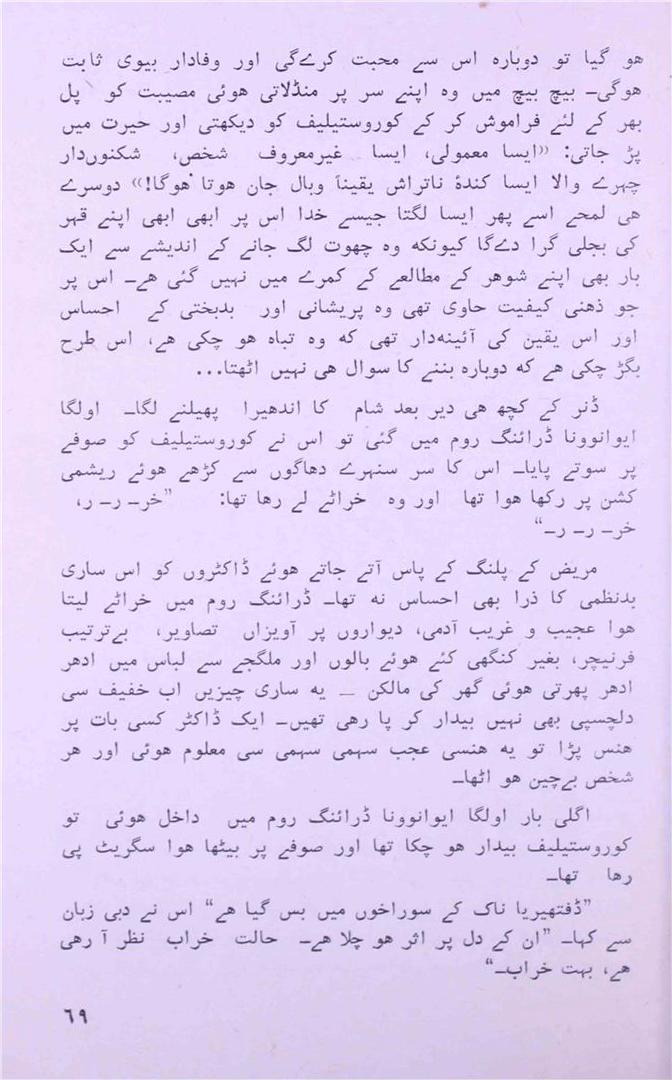 هو گیا تو دوبارہ اس سے محبت کرےگی اور وفادار بیوی ثابت
هوگی۔ بیچ بیچ میں وہ اپنے سر پر منڈلاتی هوئی مصیبت کو پل
بھر کے لئے فراموش کر کے کوروستیلیف کو دیکھتی اور حیرت میں
پڑ جاتی: «ایسا معمولی، ایسا غیرمعروف شخص، شکنوںدار
چہرے والا ایسا کندۂ ناتراش یقیناً وبال جان هوتا هوگا!» دوسرے
هی لمحے اسے پھر ایسا لگتا جیسے خدا اس پر ابھی ابھی اپنے قہر
کی بجلی گرا دےگا کیونکہ وہ چھوت لگ جانے کے اندیشے سے ایک
بار بھی اپنے شوهر کے مطالعے کے کمرے میں نہیں گئی هے۔ اس پر
جو ذهنی کیفیت حاوی تھی وہ پریشانی اور بدبختی کے احساس
اور اس یقین کی آئینہدار تھی کہ وہ تباہ هو چکی هے، اس طرح
بگڑ چکی هے کہ دوبارہ بننے کا سوال هی نہیں اٹھتا...
ڈنر کے کچھ هی دیر بعد شام کا اندھیرا پھیلنے لگا۔ اولگا
ایوانوونا ڈرائنگ روم میں گئی تو اس نے کوروستیلیف کو صوفے
پر سوتے پایا۔ اس کا سر سنہرے دھاگوں سے کڑھے هوئے ریشمی
کشن پر رکھا هوا تھا اور وہ خراٹے لے رها تھا: ”خر۔ ر۔ ر،
خر۔ ر۔ ر۔“
مریض کے پلنگ کے پاس آتے جاتے هوئے ڈاکٹروں کو اس ساری
بدنظمی کا ذرا بھی احساس نہ تھا۔ ڈرائنگ روم میں خراٹے لیتا
هوا عجیب و غریب آدمی، دیواروں پر آویزاں تصاویر، بےترتیب
فرنیچر، بغیر کنگھی کئے هوئے بالوں اور ملگجے سے لباس میں ادھر
ادھر پھرتی هوئی گھر کی مالکن — یہ ساری چیزیں اب خفیف سی
دلچسپی بھی نہیں بیدار کر پا رهی تھیں۔ ایک ڈاکٹر کسی بات پر
هنس پڑا تو یہ هنسی عجب سہمی سہمی سی معلوم هوئی اور هر
شخص بےچین هو اٹھا۔
اگلی بار اولگا ایوانوونا ڈرائنگ روم میں داخل هوئی تو
کوروستیلیف بیدار هو چکا تھا اور صوفے پر بیٹھا هوا سگریٹ پی
رها تھا۔
”ڈفتھیریا ناک کے سوراخوں میں بس گیا هے“ اس نے دبی زبان
سے کہا۔ ”ان کے دل پر اثر هو چلا هے۔ حالت خراب نظر آ رهی
هے، بہت خراب۔“
٦٩